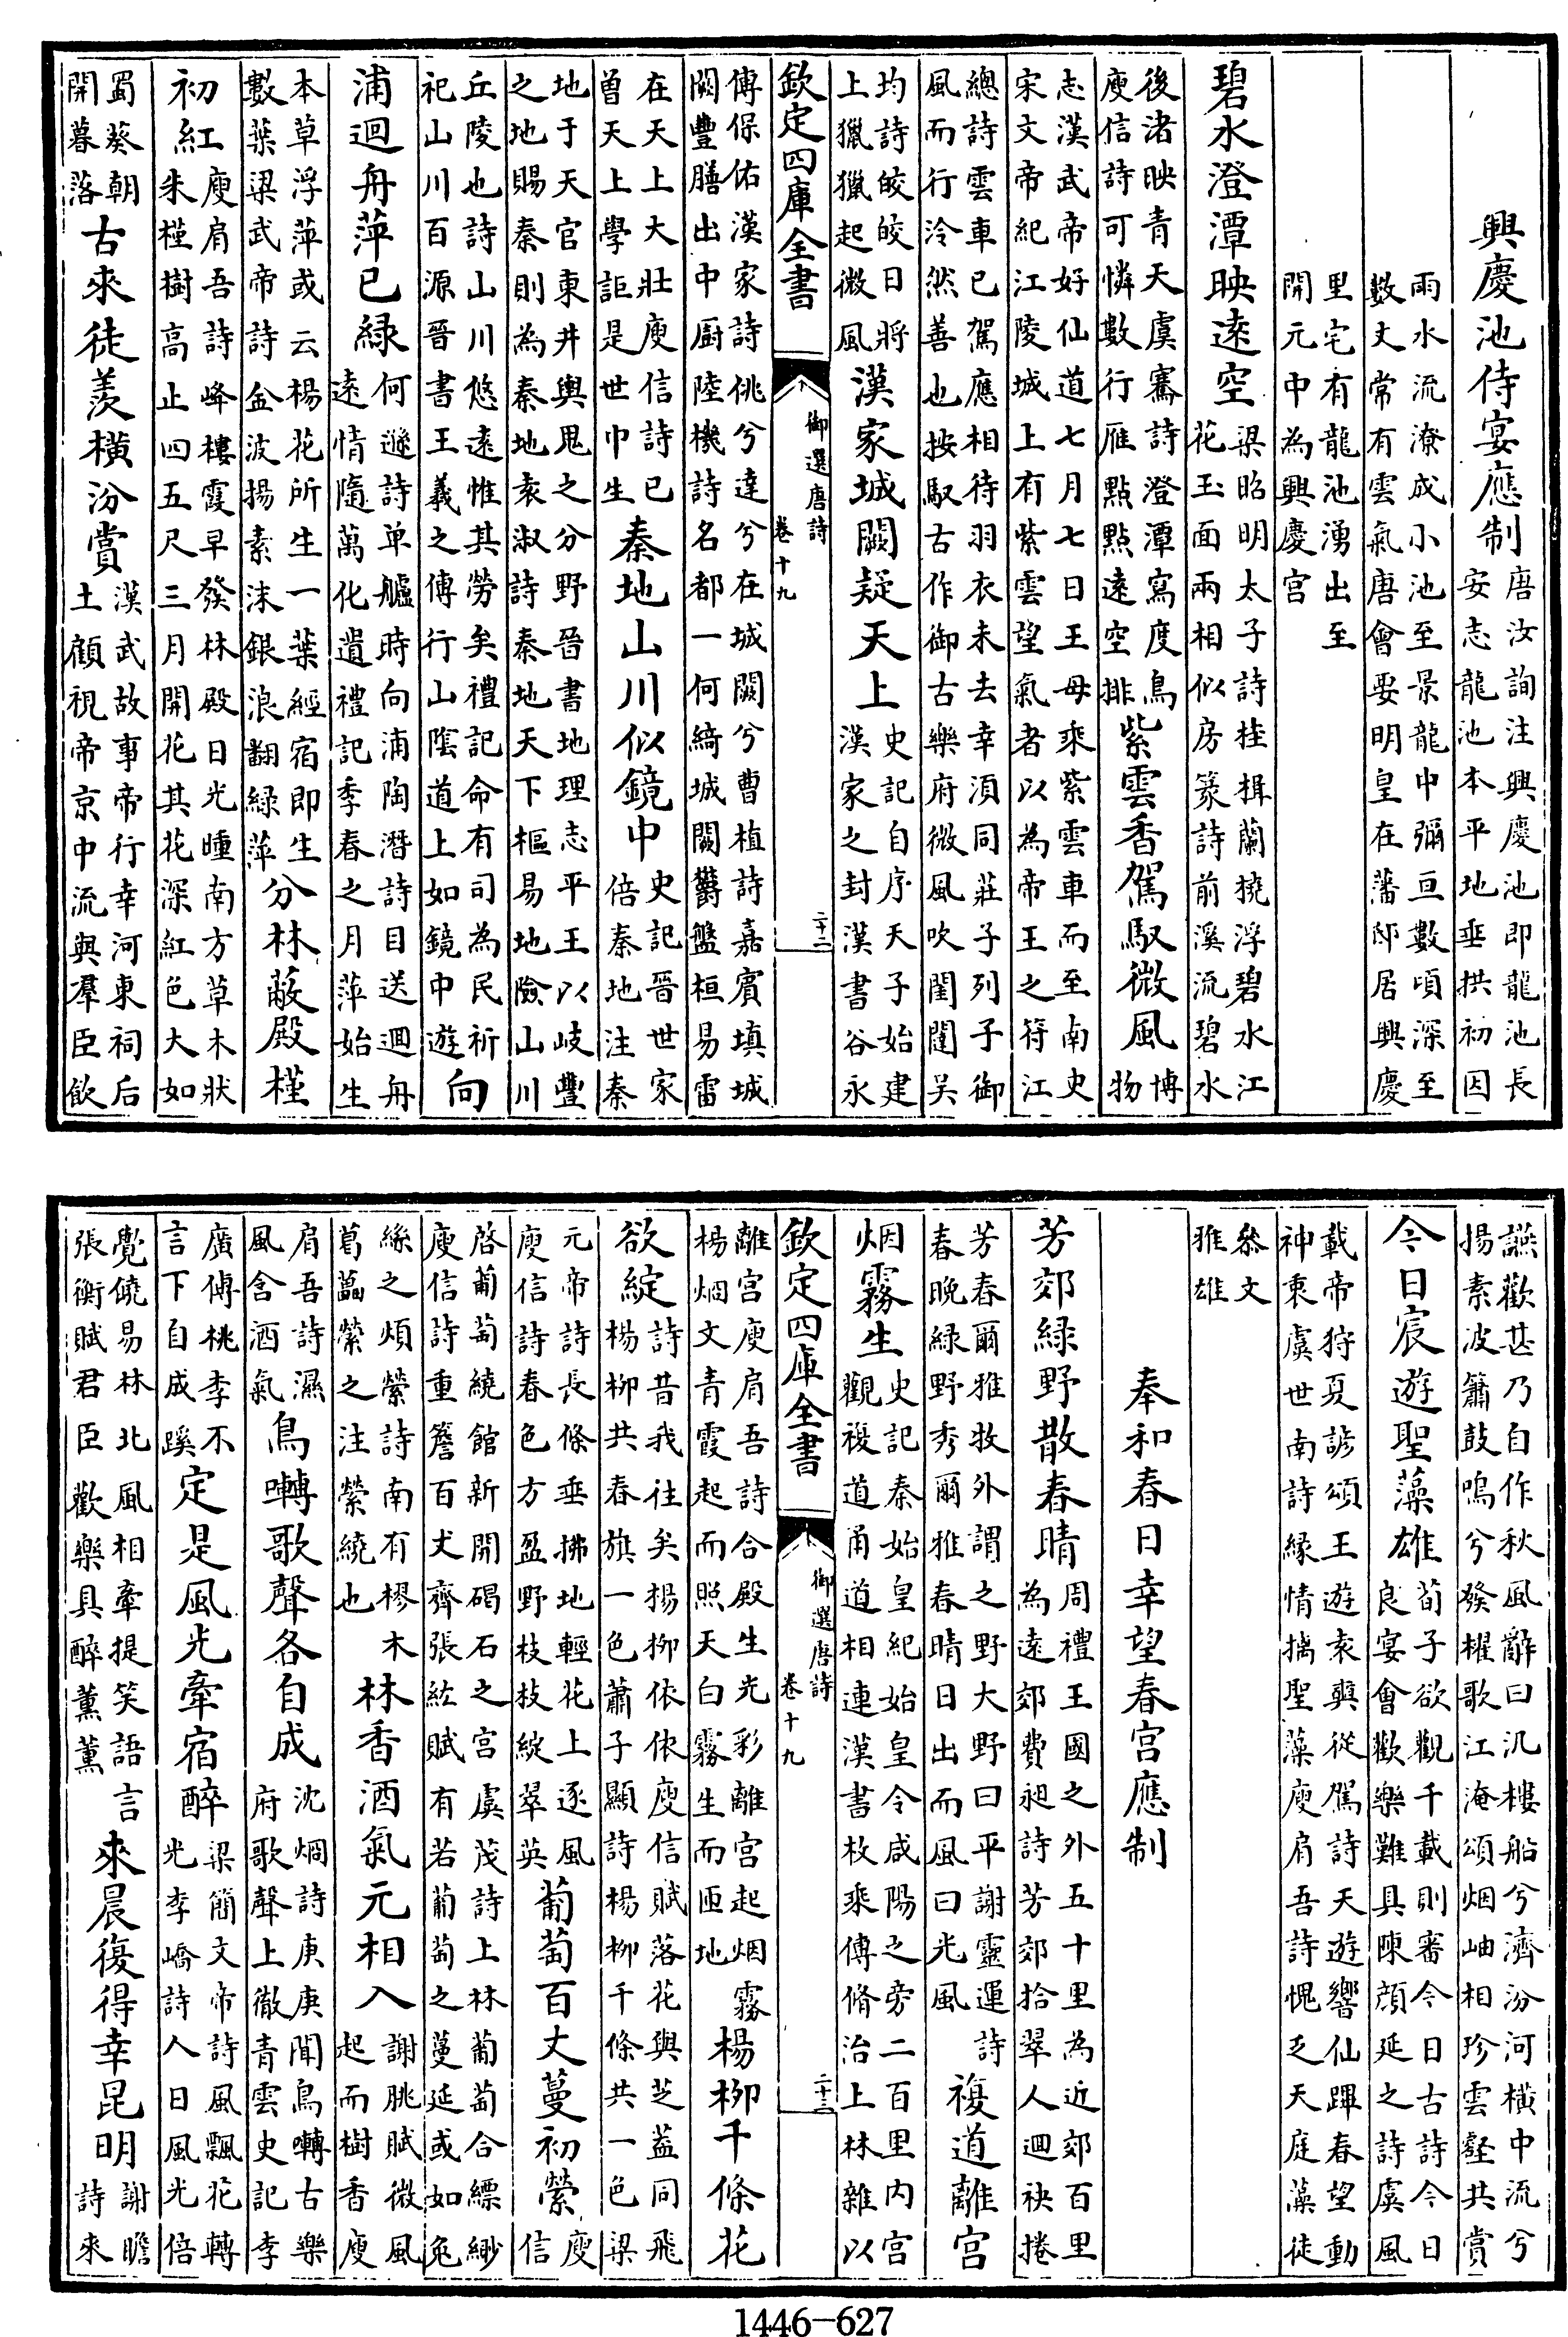 興慶池侍宴應制
唐汝詢注興慶池即龍池長
安志龍池本平地垂拱初因
雨水流潦成小池至景龍中彌亘數頃深至
數丈常有雲氣唐會要明皇在藩邸居興慶
里宅有龍池湧出至
開元中為興慶宫
碧水澄潭映遠空
梁昭明太子詩桂楫蘭橈浮碧水江
花玉面兩相似房篆詩前溪流碧水
後渚映青天虞騫詩澄潭寫度鳥
庾信詩可憐數行雁點點遠空排
紫雲香駕馭微風
博
物
志漢武帝好仙道七月七日王母乘紫雲車而至南史
宋文帝紀江陵城上有紫雲望氣者以為帝王之符江
總詩雲車已駕應相待羽衣未去幸須同莊子列子御
風而行泠然善也按馭古作御古樂府微風吹閨闥吴
均詩皎皎日將
上獵獵起微風
漢家城闕疑天上
史記自序天子始建
漢家之封漢書谷永
欽定四庫全書
御選唐詩
卷十九
二十二
傳保佑漢家詩佻兮達兮在城闕兮曹植詩嘉賓填城
闕豐膳出中厨陸機詩名都一何綺城闕欝盤桓易雷
在天上大壯庾信詩已
曽天上學詎是世中生
秦地山川似鏡中
史記晉世家
倍秦地注秦
地于天官東井輿鬼之分野晉書地理志平王以岐豐
之地賜秦則為秦地袁淑詩秦地天下樞易地險山川
丘陵也詩山川悠遠惟其勞矣禮記命有司為民祈
祀山川百源晉書王羲之傳行山隂道上如鏡中遊
向
浦迴舟萍已綠
何遜詩单艫時向浦陶潛詩目送迴舟
遠情隨萬化遺禮記季春之月萍始生
本草浮萍或云楊花所生一葉經宿即生
數葉梁武帝詩金波揚素沫銀浪翻綠萍
分林蔽殿槿
初紅
庾肩吾詩峰樓霞早發林殿日光曛南方草木狀
朱槿樹高止四五尺三月開花其花深紅色大如
蜀葵朝
開暮落
古來徒羨橫汾賞
漢武故事帝行幸河東祠后
土顧視帝京中流與羣臣飲
讌歡甚乃自作秋風辭曰汎樓船兮濟汾河橫中流兮
揚素波簫鼓鳴兮發櫂歌江淹頌烟岫相珍雲壑共賞
今日宸遊聖藻雄
荀子欲觀千載則審今日古詩今日
良宴會歡樂難具陳顔延之詩虞風
載帝狩夏諺頌王遊袁奭從駕詩天遊響仙蹕春望動
神衷虞世南詩緣情摛聖藻庾肩吾詩愧乏天庭藻徒
叅文
雅雄
奉和春日幸望春宫應制
芳郊綠野散春晴
周禮王國之外五十里為近郊百里
為遠郊費昶詩芳郊拾翠人迴袂捲
芳春爾雅牧外謂之野大野曰平謝靈運詩
春晚綠野秀爾雅春晴日出而風曰光風
複道離宫
烟霧生
史記秦始皇紀始皇令咸陽之旁二百里内宫
觀複道甬道相連漢書枚乘傳脩治上林雜以
欽定四庫全書
御選唐詩
卷十九
二十三
離宫庾肩吾詩合殿生光彩離宫起烟霧
楊烱文青霞起而照天白霧生而匝地
楊柳千條花
欲綻
詩昔我往矣揚柳依依庾信賦落花與芝蓋同飛
楊柳共春旗一色蕭子顯詩楊柳千條共一色梁
元帝詩長條垂拂地輕花上逐風
庾信詩春色方盈野枝枝綻翠英
葡萄百丈蔓初縈
庾
信
啓葡萄繞館新開碣石之宫虞茂詩上林葡萄合縹緲
庾信詩重簷百丈齊張紘賦有若葡萄之蔓延或如兔
絲之煩縈詩南有樛木
葛藟縈之注縈繞也
林香酒氣元相入
謝朓賦微風
起而樹香庾
肩吾詩濕
風含酒氣
鳥囀歌聲各自成
沈烱詩庚庚聞鳥囀古樂
府歌聲上徹青雲史記李
廣傳桃李不
言下自成蹊
定是風光牽宿醉
梁簡文帝詩風飄花轉
光李嶠詩人日風光倍
覺饒易林北風相牽提笑語言
張衡賦君臣歡樂具醉薰薰
來晨復得幸昆明
謝瞻
詩來
1446-627